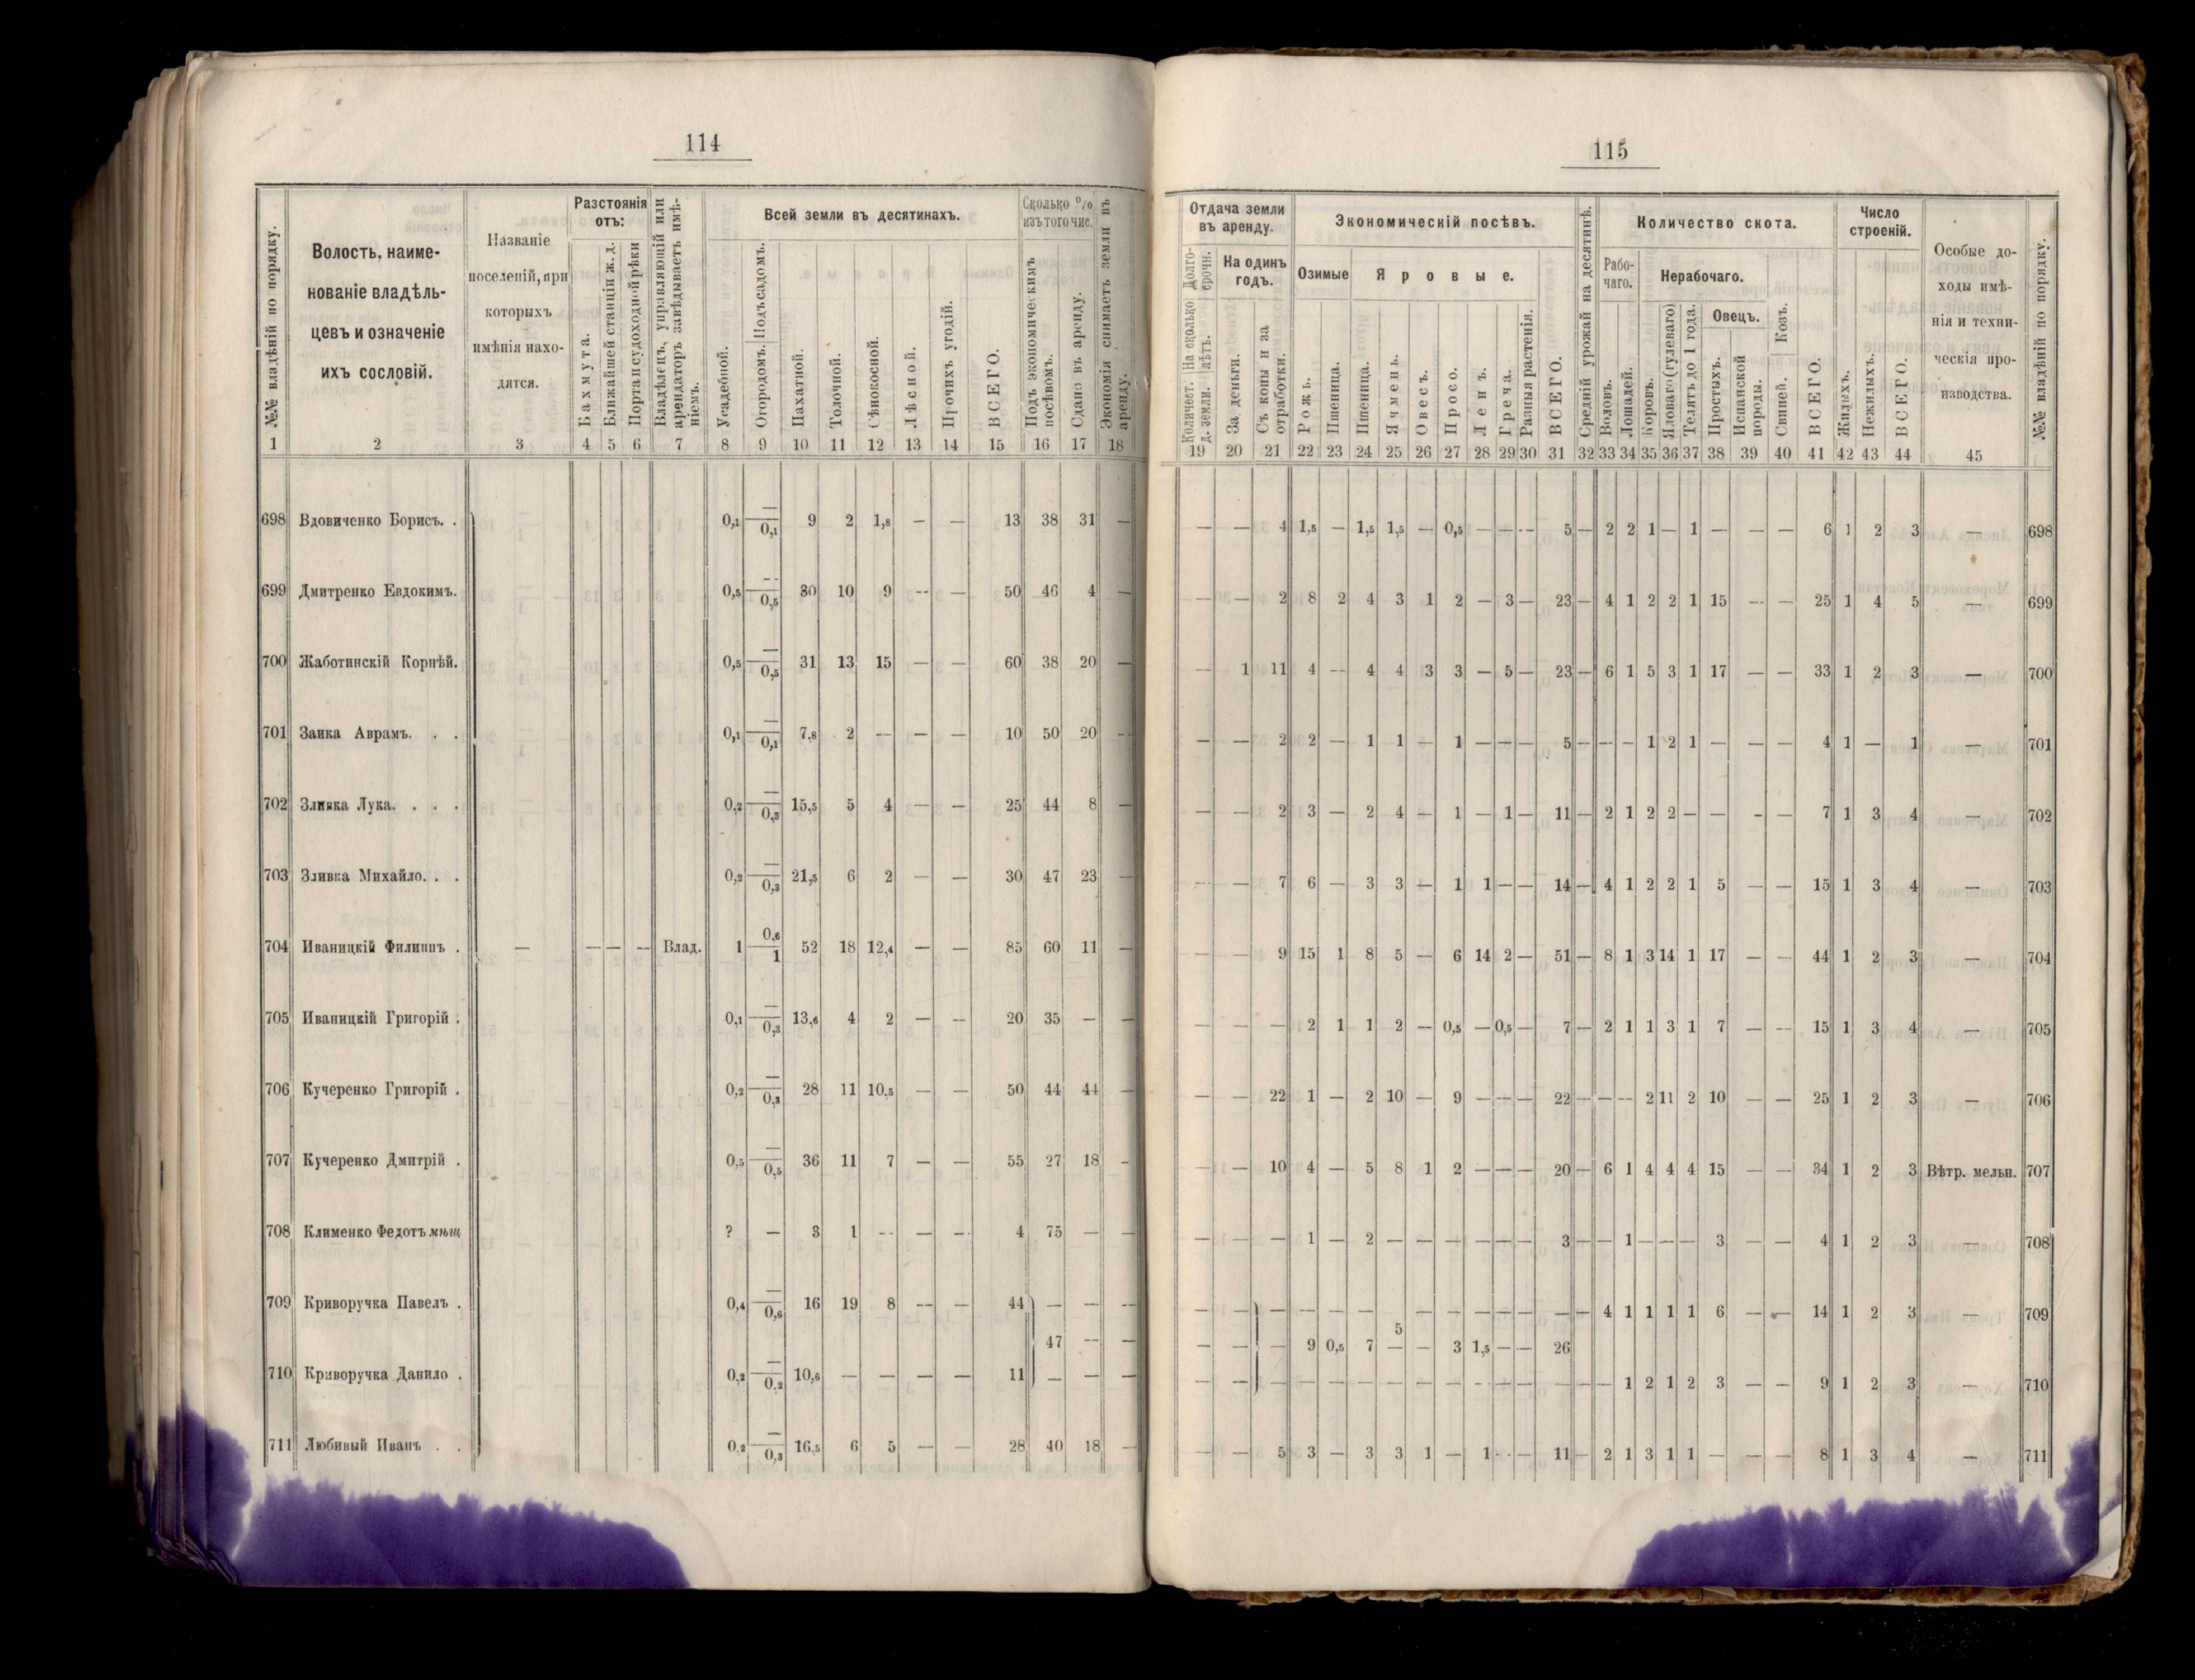 114
№№ владѣній по порядку.
Волость, наиме-
нованіе владѣль-
цевъ и означеніе
ихъ сословій.
Названіе
поселеній, при
которыхъ
имѣнія нахо-
дятся.
Разстоянія
отъ:
Бахмута.
Ближайшей станціи ж. д.
Порта и судоходной рѣки
Владѣлецъ, управляющій или
арендаторъ завѣдываетъ имѣ-
ніемъ.
Всей земли въ десятинахъ.
Усадебной.
Огородомъ. Подъ садомъ.
Пахатной.
Толочной.
Сѣнокосной.
Лѣсной.
Прочихъ угодій.
ВСЕГО.
Сколько %
изъ того чис.
Подъ экономическимъ
посѣвомъ.
Сдано въ аренду.
Экономія снимаетъ земли въ
аренду.
1 2 3 4 5 6 7 8 9 10 11 12 13 14 15 16 17 18
698 Вдовиченко Борисъ. . 0,1 — 0,1 9 2 1,8 — — 13 38 31 —
699 Дмитренко Евдокимъ. 0,5 — 0,5 30 10 9 — — 50 46 4 —
700 Жаботинскій Корнѣй. 0,5 — 0,5 31 13 15 — — 60 38 20 —
701 Заика Аврамъ. . . 0,1 — 0,1 7,8 2 — — — 10 50 20 —
702 Зливка Лука. . . . 0,2 — 0,3 15,5 5 4 — — 25 44 8 —
703 Зливка Михайло. . . 0,2 — 0,3 21,5 6 2 — — 30 47 23 —
704 Иваницкій Филиппъ . — — — — Влад. 1 0,6 1 52 18 12,4 — — 85 60 11 —
705 Иваницкій Григорій . 0,1 — 0,3 13,6 4 2 — — 20 35 — —
706 Кучеренко Григорій . 0,2 — 0,3 28 11 10,5 — — 50 44 44 —
707 Кучеренко Дмитрій . 0,5 — 0,5 36 11 7 — — 55 27 18 -
708 Клименко Федотъ мѣщ ? — 3 1 — — — 4 75 — —
709 Криворучка Павелъ . 0,4 — 0,6 16 19 8 — — 44 — — —
47 — —
710 Криворучка Данило . 0,2 — 0,2 10,6 — — — — 11 — — —
711 Любивый Иванъ . . 0,2 — 0,3 16,5 6 5 — — 28 40 18 —
115
Отдача земли
въ аренду.
Долго-
срочн.
Количест. На сколько
д. земли. лѣтъ.
На одинъ
годъ.
За деньги.
Съ копы и за
отработки.
Экономическій посѣвъ.
Озимые
Яровые.
Рожь.
Пшеница.
Пшеница.
Ячмень.
Овесъ.
Просо.
Ленъ.
Греча.
Разныя растенія.
ВСЕГО.
Средній урожай на десятинѣ.
Количество скота.
Рабо-
чаго.
Нерабочаго.
Воловъ.
Лошадей.
Коровъ.
Яловаго (гулеваго)
Телятъ до 1 года.
Овецъ.
Простыхъ.
Испанской
породы.
Свиней. Козъ.
ВСЕГО.
Число
строеній.
Жилыхъ.
Нежилыхъ.
ВСЕГО.
Особые до-
ходы имѣ-
нія и техни-
ческія про-
изводства.
№№ владѣній по порядку.
19 20 21 22 23 24 25 26 27 28 29 30 31 32 33 34 35 36 37 38 39 40 41 42 43 44 45
— — 4 1,5 — 1,5 1,5 — 0,5 — — — 5 — 2 2 1 — 1 — — — 6 1 2 3 — 698
— — 2 8 2 4 3 1 2 — 3 — 23 — 4 1 2 2 1 15 — — 25 1 4 5 — 699
— 1 11 4 — 4 4 3 3 — 5 — 23 — 6 1 5 3 1 17 — — 33 1 2 3 — 700
— — 2 2 — 1 1 — 1 — — — 5 — — — 1 2 1 — — — 4 1 — 1 — 701
— — 2 3 — 2 4 — 1 — 1 — 11 — 2 1 2 2 — — - — 7 1 3 4 — 702
— — 7 6 — 3 3 — 1 1 — — 14 — 4 1 2 2 1 5 — — 15 1 3 4 — 703
— — 9 15 1 8 5 — 6 14 2 — 51 — 8 1 3 14 1 17 — — 44 1 2 3 — 704
— — — 2 1 1 2 — 0,5 — 0,5 — 7 — 2 1 1 3 1 7 — — 15 1 3 4 — 705
— — 22 1 — 2 10 — 9 — — — 22 — — — 2 11 2 10 — — 25 1 2 3 — 706
— — 10 4 — 5 8 1 2 — — — 20 — 6 1 4 4 4 15 — — 34 1 2 3 Вѣтр. мельн. 707
— — — 1 — 2 — — — — — — 3 — — 1 — — — 3 — — 4 1 2 3 — 708
— — — — — — — — — — — — — 4 1 1 1 1 6 — — 14 1 2 3 — 709
5
— — — 9 0,5 7 — — 3 1,5 — — 26
— — — — — — — — — — — — — — 1 2 1 2 3 — — 9 1 2 3 — 710
— — 5 3 — 3 3 1 — 1 - — 11 — 2 1 3 1 1 — — — 8 1 3 4 — 711